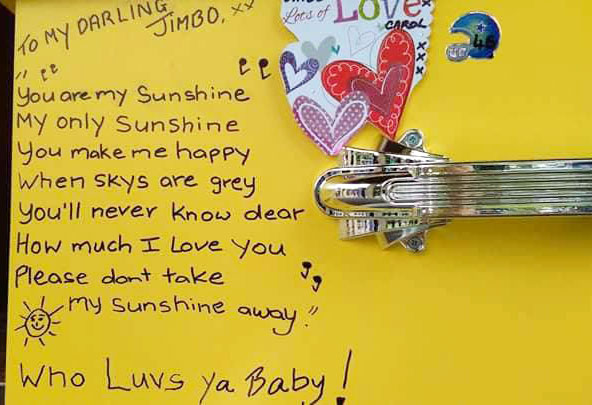 TO MY DARLING
JIMBO. xx
Lots of LOVE x
CAROL
x x x
46
"You are my Sunshine
My only Sunshine
You make me happy
When skys are grey
You'll never know dear
How much I Love you
Please dont take
my sunshine away."
Who Luvs ya Baby!